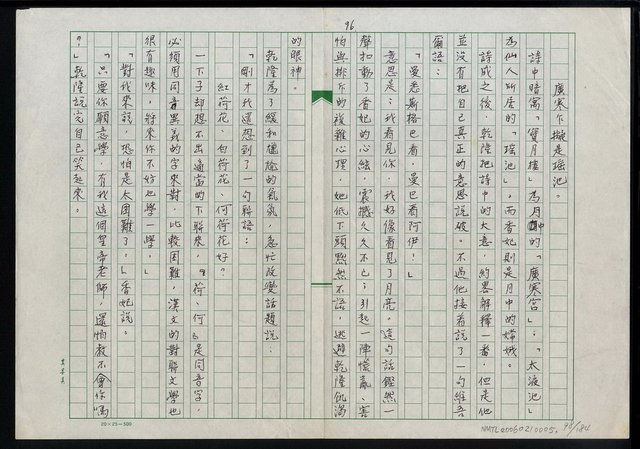 96
廣寒乍擬是瑤池。
詩中暗寓「寶月樓」為月中的「廣寒宮」；「太液池」
為仙人所居的「瑤池」，而香妃則是月中的嫦娥。
詩成之後，乾隆把詩中的大意，約略解釋一番，但是他
並沒有把自己真正的意思說破。不過他接着說了一句維吾
爾語：
「曼悉斯格巴看，曼巴看阿伊！」
意思是：我看見你，我好像看見了月亮。這句話鏗然一
聲扣動了香妃的心絃，震撼久久不已；引起一陣慌亂、害
怕與排斥的複雜心理，她低下頭默然不語，逃避乾隆飢渴
的眼神。
乾隆為了緩和尷尬的氣氛，急忙改變話題說：
「剛才我還想到了一句聯語：
紅荷花，白荷花，何荷花好？
一下子卻想不出適當的下聯來，『荷、何』是同音字，
必須用同音異義的字來對，比較困難，漢文的對聯文學也
很有趣味，將來你不妨也學一學。」
「對我來說，恐怕是太困難了。」香妃說。
「只要你願意學，有我這個皇帝老師，還怕教不會你嗎
？」乾隆說完自己笑起來。
20×25=500
NMTL20060210005. 98/184